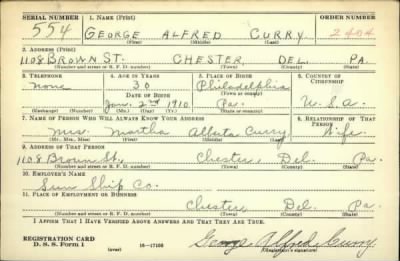 SERIAL NUMBER 1. NAME (Print) ORDER NUMBER
554 GEORGE ALFRED CURRY 2404
(First) (Middle) (Last)
2. ADDRESS (Print)
1108 BROWN ST. CHESTER, DEL. PA.
(Number and street or R. F. D. number) (Town) (County) (State)
3. TELEPHONE 4. AGE IN YEARS 5. PLACE OF BIRTH 6. COUNTRY OF CITIZENSHIP
none 30 Philadelphia
DATE OF BIRTH (Town or county)
Jan. 2nd 1910 Pa. U.S.A.
(Exchange) (Number) (Mo.) (Day) (Yr.) (State or country)
7. NAME OF PERSON WHO WILL ALWAYS KNOW YOUR ADDRESS 8. RELATIONSHIP OF THAT PERSON
Mrs. Martha Curry Wife
(Mr., Mrs., Miss) (First) (Middle) (Last)
9. ADDRESS OF THAT PERSON
1108 Brown St., Chester, Del. Pa.
(Number and street or R. F. D. number) (Town) (County) (State)
10. EMPLOYER'S NAME
Sun Ship Co.
11. PLACE OF EMPLOYMENT OR BUSINESS
Chester, Del. Pa.
(Number and street or R. F. D. number) (Town) (County) (State)
I AFFIRM THAT I HAVE VERIFIED ABOVE ANSWERS AND THAT THEY ARE TRUE.
REGISTRATION CARD
D. S. S. Form 1 (over) 16—17105 George Alfred Curry
(Registrant's signature)